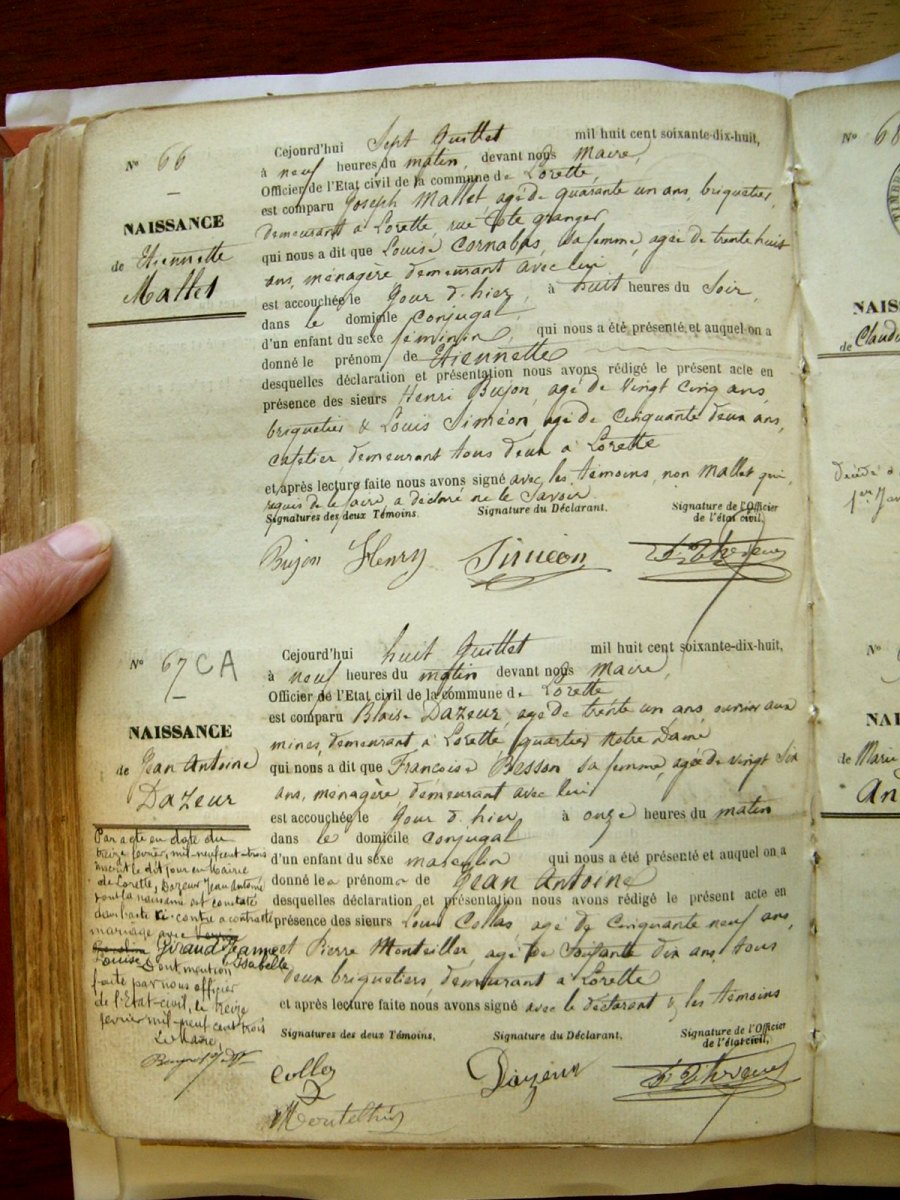 N° 66
NAISSANCE
de Etiennette
Mallet
Cejourd'hui Sept Juillet mil huit cent soixante-dix-huit,
à neuf heures du matin, devant nous Maire,
Officier de l'Etat civil de la commune de Lorette,
est comparu Joseph Mallet agé de quarante un ans, briquetier,
demeurant à Lorette, rue Côte granger
qui nous a dit que Louise Cornabas, sa femme, agée de trente huit
ans, ménagère demeurant avec lui
est accouchée le Jour d'hier, à huit heures du Soir,
dans le domicile conjugal
d'un enfant du sexe féminin, qui nous a été présenté, et auquel on a
donné le prénom de Etiennette
desquelles déclaration et présentation nous avons rédigé le présent acte en
présence des sieurs Henri Bujon, agé de Vingt Cinq ans,
briquetier & Louis Siméon, agé de Cinquante deux ans,
cafetier, demeurant tous deux à Lorette
et après lecture faite nous avons signé avec les témoins, non Mallet qui
requis de le faire a déclaré ne le Savoir
Signatures des deux Témoins. Signature du Déclarant. Signature de l'Officier
de l'état civil,
Bujon Henry Siméon
N° 67 CA
NAISSANCE
de Jean Antoine
Dazeur
Cejourd'hui huit Juillet mil huit cent soixante-dix-huit,
à neuf heures du matin devant nous Maire,
Officier de l'Etat civil de la commune de Lorette
est comparu Blaise Dazeur, agé de trente un ans, ouvrier aux
mines, demeurant à Lorette, quartier Notre Dame
qui nous a dit que Francoise Besson sa femme, agée de vingt Six
ans, ménagère demeurant avec lui
est accouchée le Jour d'hier, à onze heures du matin
dans le domicile conjugal
d'un enfant du sexe masculin qui nous a été présenté et auquel on a
donné les prénoms de Jean Antoine
desquelles déclaration et présentation nous avons rédigé le présent acte en
présence des sieurs Louis Collas agé de Cinquante neuf ans,
et Pierre Monteiller, agé de Soixante dix ans tous
deux briquetiers demeurant à Lorette
et après lecture faite nous avons signé avec le déclarant & les témoins
Signatures des deux Témoins. Signature du Déclarant. Signature de l'Officier
de l'état civil,
Dazeur
Par acte en date du
treize février, mil-neuf-cent-trois
inscrit le dit jour en Mairie
de Lorette, Dazeur Jean Antoine
dont la naissance est constatée
dans l'acte ci-contre a contracté
mariage avec
Louise Giraud Jeanne
Isabelle
Dont mention
faite par nous officier
de l'Etat-civil, le treize
février mil-neuf cent trois
Le Maire,
N° 68
TIMBRE
NAISS
de Claud
Décédé à
1er Jan
N°
NAI
de Marie
An